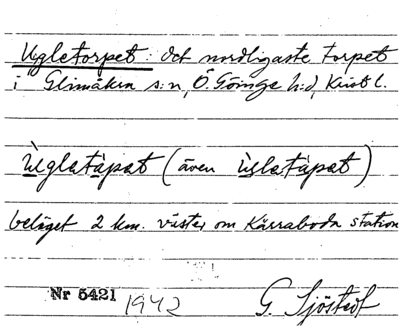 Ugletorpet: det nordligaste torpet
i Glimåkra s:n, Ö. Göinge h:d, Krist l.
Ùglatàpat (även ùslatàpat)
beläget 2 km. väster om Kärraboda station
Nr 5421 1942 G. Sjöstedt